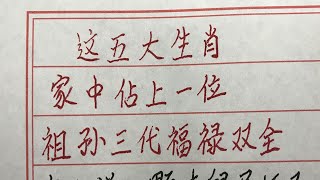 这五大生肖
家中佔上一位
祖孙三代福禄双全